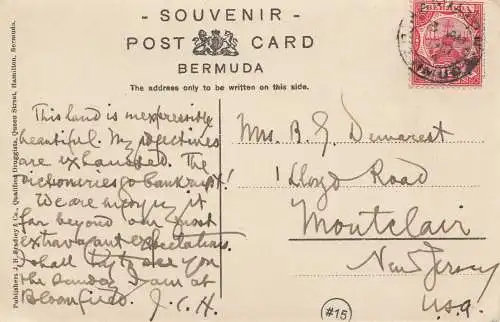 - SOUVENIR -
POST CARD
BERMUDA
The address only to be written on this side.
BERMUDA
Publishers J. H. Bradley & Co., Qualified Druggists, Queen Street, Hamilton, Bermuda.
This land is inexpressibly
beautiful. My adjectives
are exhausted. The
dictionaries go bankrupt!
We are enjoying it
far beyond our most
extravagant expectations.
I shall try to see you
the Sunday I am at
Bloomfield. J.C.H.
Mrs. B. G. Demarest
1 Lloyd Road
Montclair
New Jersey
U.S.A.
#15